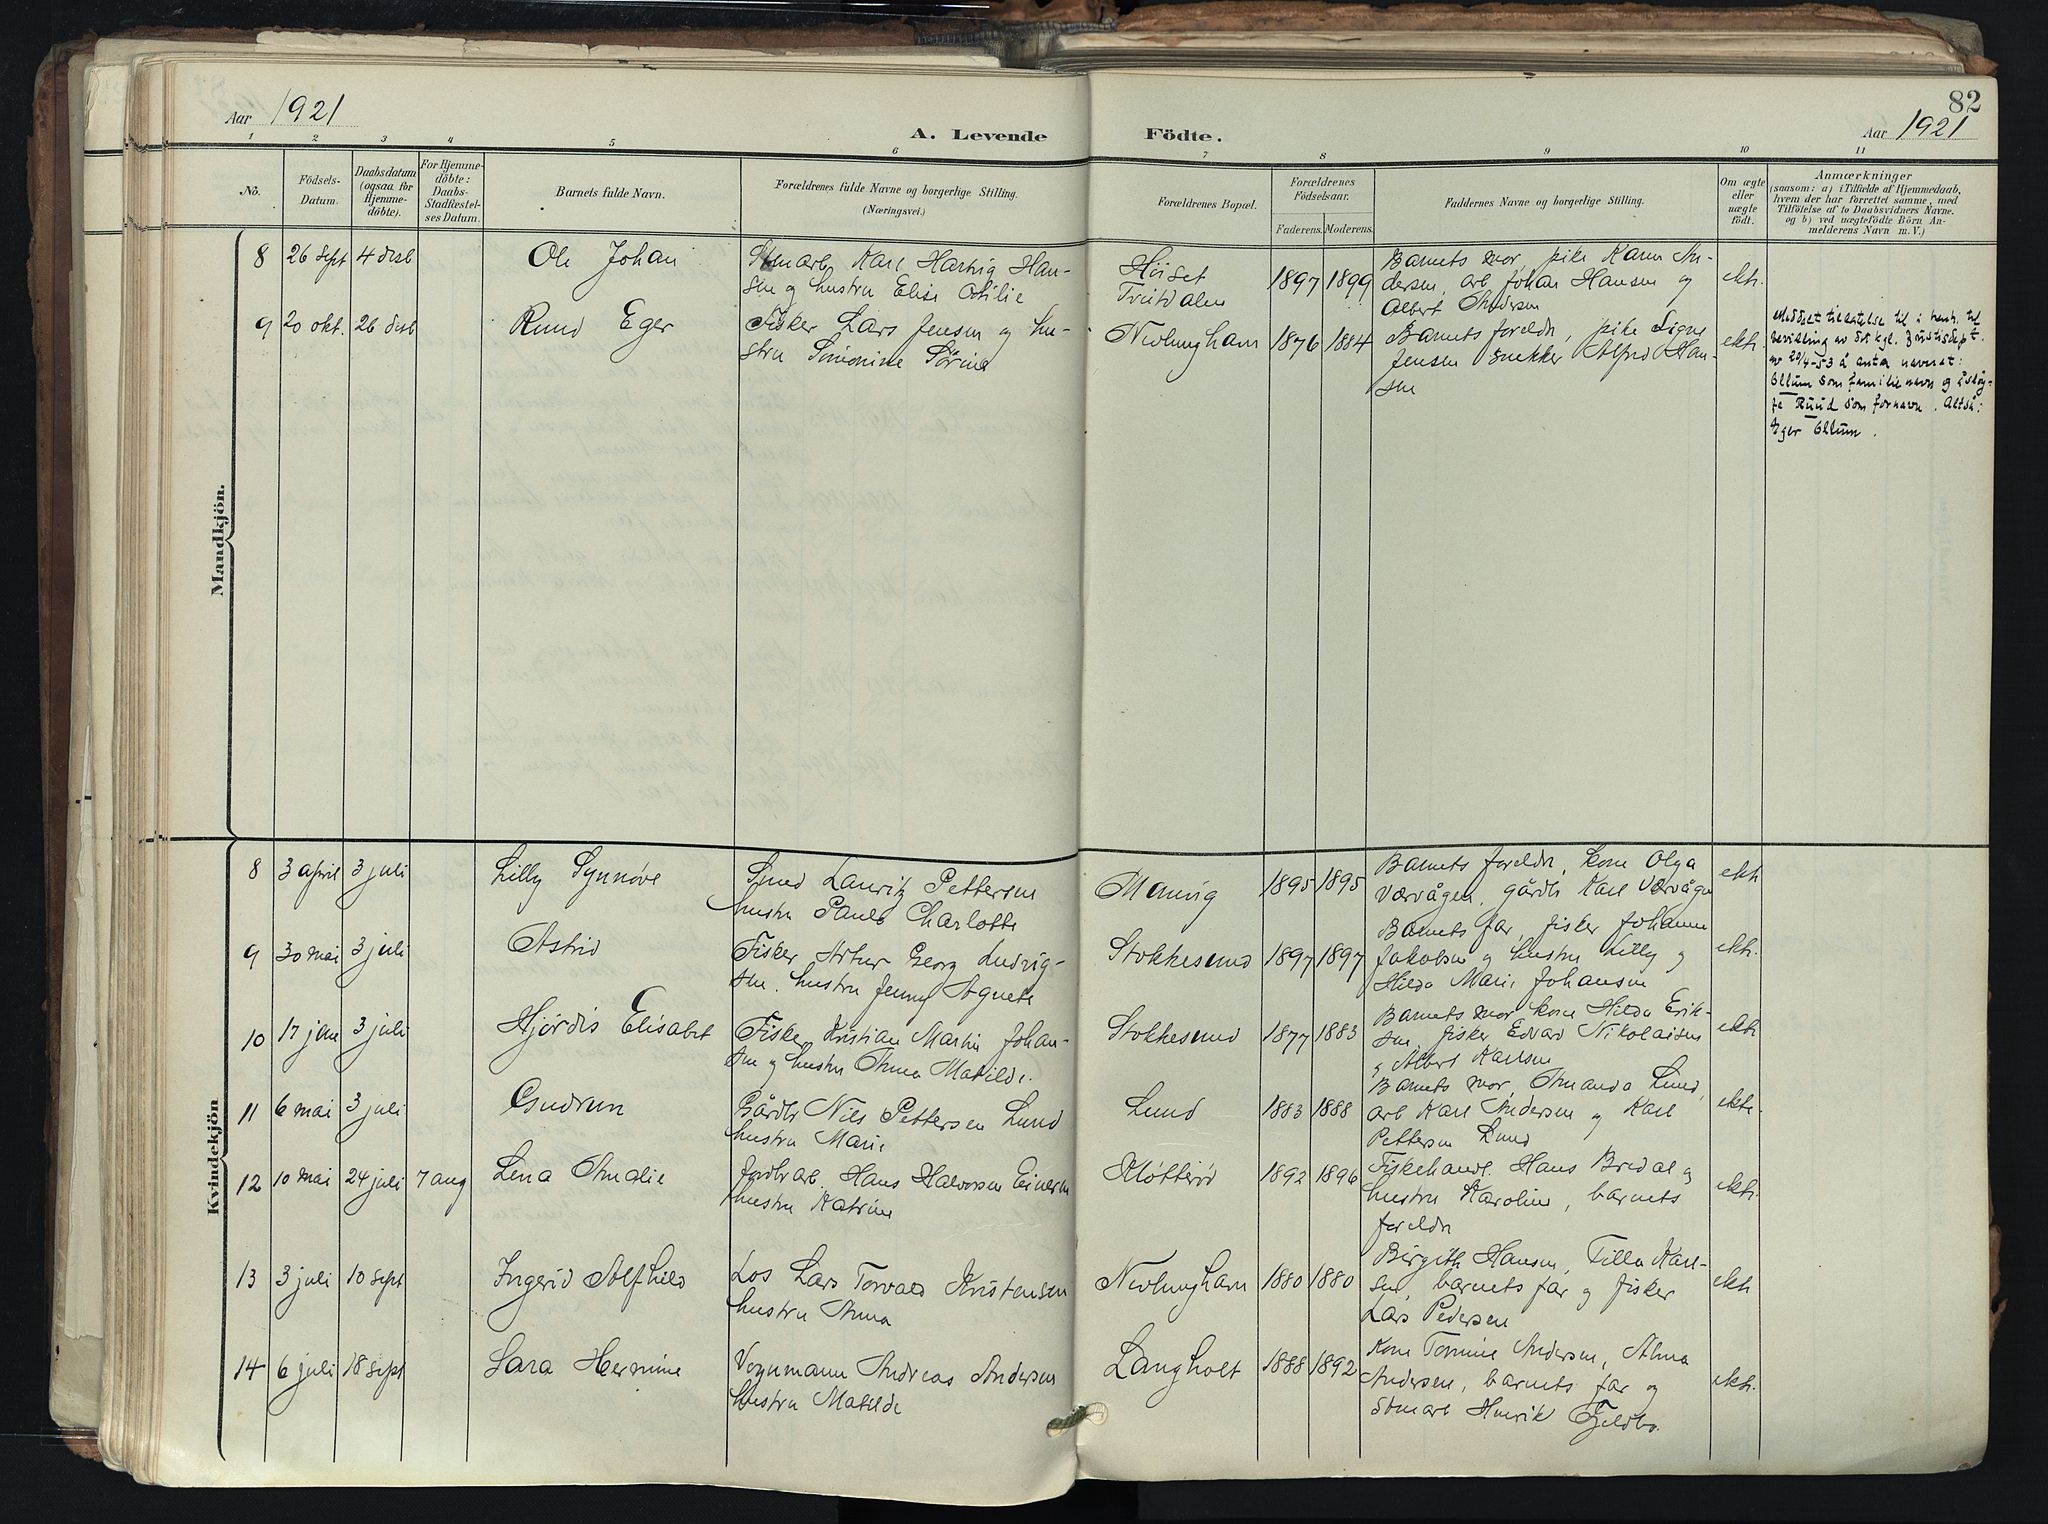 82
Aar 1921
A. Levende Födte.
Aar 1921
1 2 3 4 5 6 7 8 9 10 11
No.
Födsels-Datum.
Daabsdatum (ogsaa for Hjemmedöbte).
For Hjemmedöbte: Daabs-Stadfæstelses Datum.
Barnets fulde Navn.
Forældrenes fulde Navne og borgerlige Stilling.
(Næringsvei.)
Forældrenes Bopæl.
Forældrenes Födselsaar.
Faderens. Moderens.
Faddernes Navne og borgerlige Stilling.
Om ægte eller uægte födt.
Anmærkninger
(saasom: a) i Tilfælde af Hjemmedaab,
hvem der har forrettet samme, med
Tilföielse af to Daabsvidners Navne.
og b) ved uægtefödte Börn An-
melderens Navn m. V.)
Mandkjön.
8 26 sept 4 desb Ole Johan
Stenarb Karl Hartvig Han-
sen og hustru Elise Otilie
Höiset
Tveitdalen
1897 1899
Barnets mor, pike Karen An-
dersen, arb Johan Hansen og
Albert Andersen
ekte.
9 20 okt. 26 desb Ruud Eger
Fisker Lars Jensen og hu-
stru Simonine Sørine
Nevlunghavn 1876 1884
Barnets foreldre, pike Signe
Jensen snekker Alfred Han-
sen
ekte.
Meddelt tillatelse til i henh. til
bevilling av det kgl. Justisdept.
av 20/4-53 å anta navnet:
Ellum som familienavn og å sløy-
fe Ruud som fornavn. Altså:
Eger Ellum.
Kvindekjön
8 3 april 3 juli Lilly Synnöve
Smed Lauritz Pettersen
hustru Paula Charlotte
1895 1895
Barnets foreldre, kone Olga
Værvågen, gårdbr Karl Værvågen
ekte
9 30 mai 3 juli Astrid
Fisker Artur Georg Ludvig-
sen. hustru Jenny Agnete
Stokkesund 1897 1897
Barnets far, fisker Johannes
Jakobsen og hustru Lilly og
Hilda Marie Johansen
ekte.
10 17 jan 3 juli Hjördis Elisabet
Fisker Kristian Martin Johan-
sen og hustru Anna Matilde.
Stokkesund 1877 1883
Barnets mor kone Hilda Erik-
sen, fisker Edvard Nikolaisen
og Albert Karlsen
ekte
11 6 mai 3 juli Gudrun
Gårdbr Nils Pettersen Lund
hustru Marie
Lund 1883 1888
Barnets mor, Amanda Lund,
arb Karl Andersen og Karl
Pettersen Lund
ekte.
12 10 mai 24 juli 7 aug Lena Amalie
Jordbrarb. Hans Halvorsen
hustru Katrine
Kløtterød 1892 1896
Fiskehandl. Hans Bredal og
hustru Karoline, barnets
foreldre
ekte.
13 3 juli 10 sept Ingerid Alfhild
Los Lars Torvald Kristensen
hustru Anna
Nevlunghavn 1880 1880
Birgith Hansen, Tilla Karl-
sen, barnets far og fisker
Lars Pedersen
ekte
14 6 juli 18 sept Sara Hermine
Vognmann Andreas Andersen
hustru Matilde
Langholt 1888 1892
Kone Tomine Andersen, Alma
Andersen, barnets far og
stenarb Henrik Fjeldbo.
ekte.